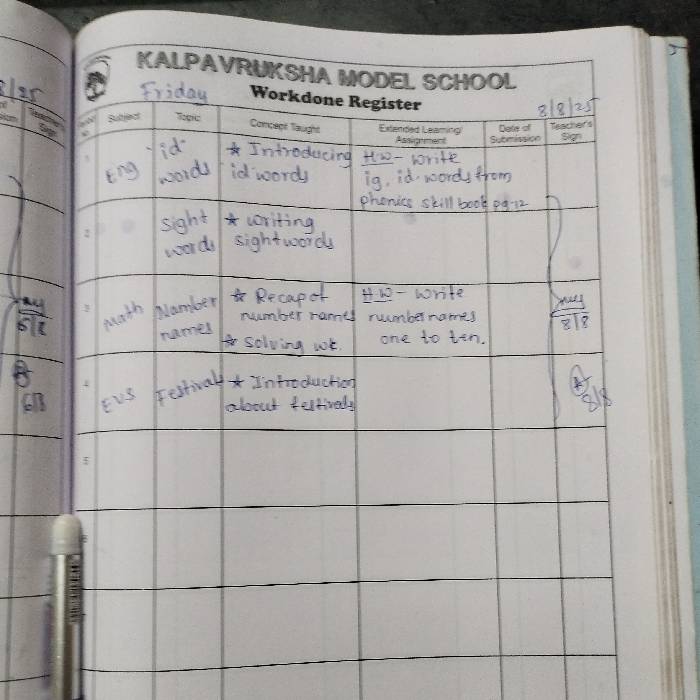 KALPAVRUKSHA MODEL SCHOOL
Friday Workdone Register 8/8/25
Subject Topic Concept Taught Extended Learning/ Assignment Date of Submission Teacher's Sign
1 Eng "id" words ★ Introducing 'id' words HW - write
ig, id. words from
phonics skill book pg-12
2 Sight words ★ writing
sight words
3 Math Number names ★ Recap of
number names
★ Solving wk. HW - write
number names
one to ten. 8/8
4 EVS Festivals ★ Introduction
about festivals 8/8
5
6
8/25
6/8
6/8